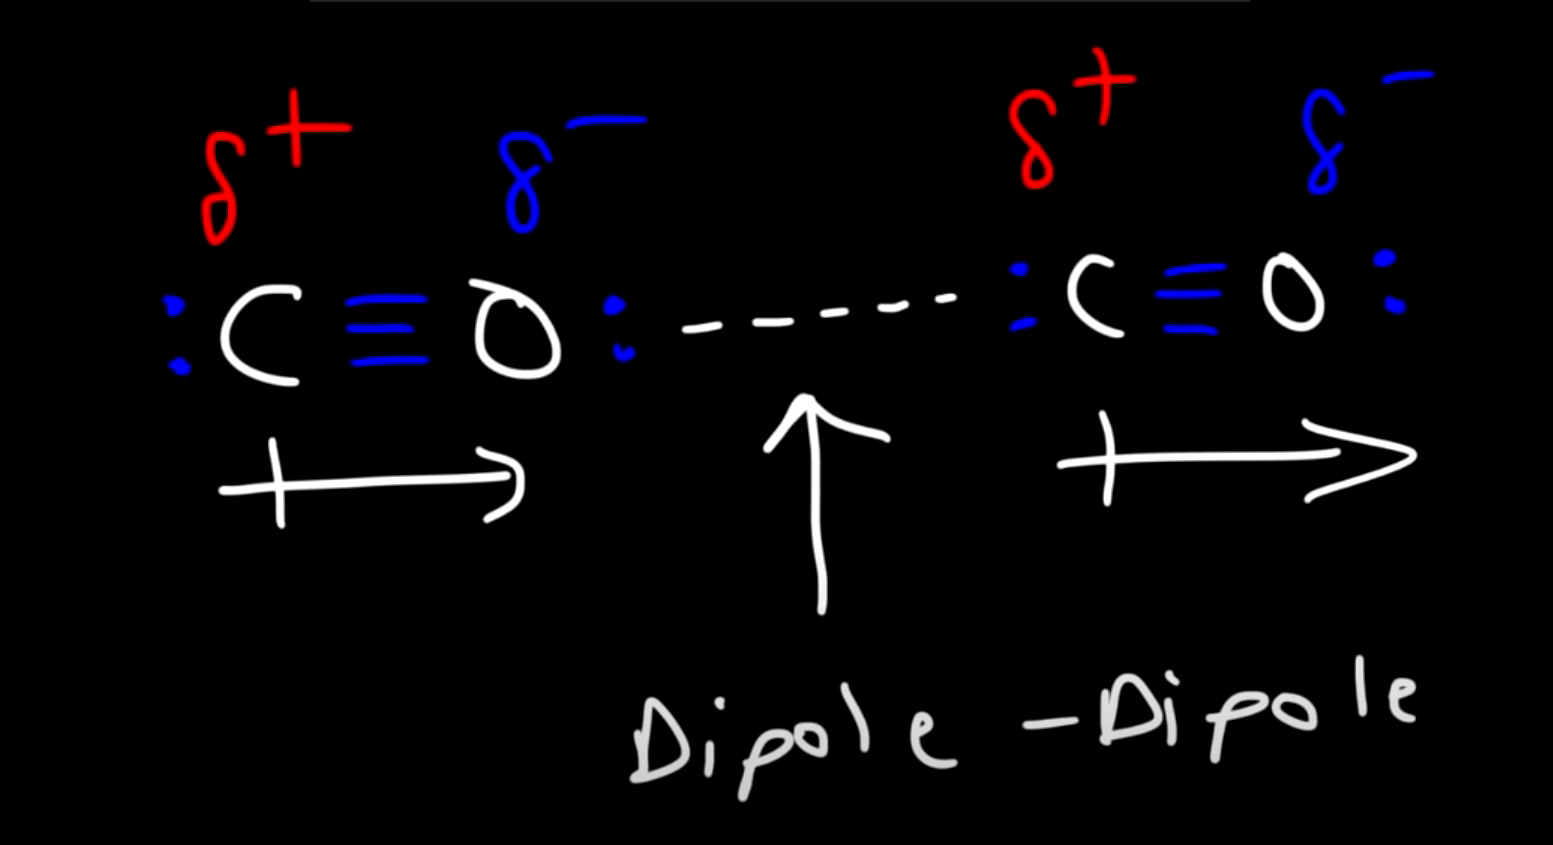 δ+ δ− δ+ δ−
:C≡O: ----- :C≡O:
Dipole - Dipole